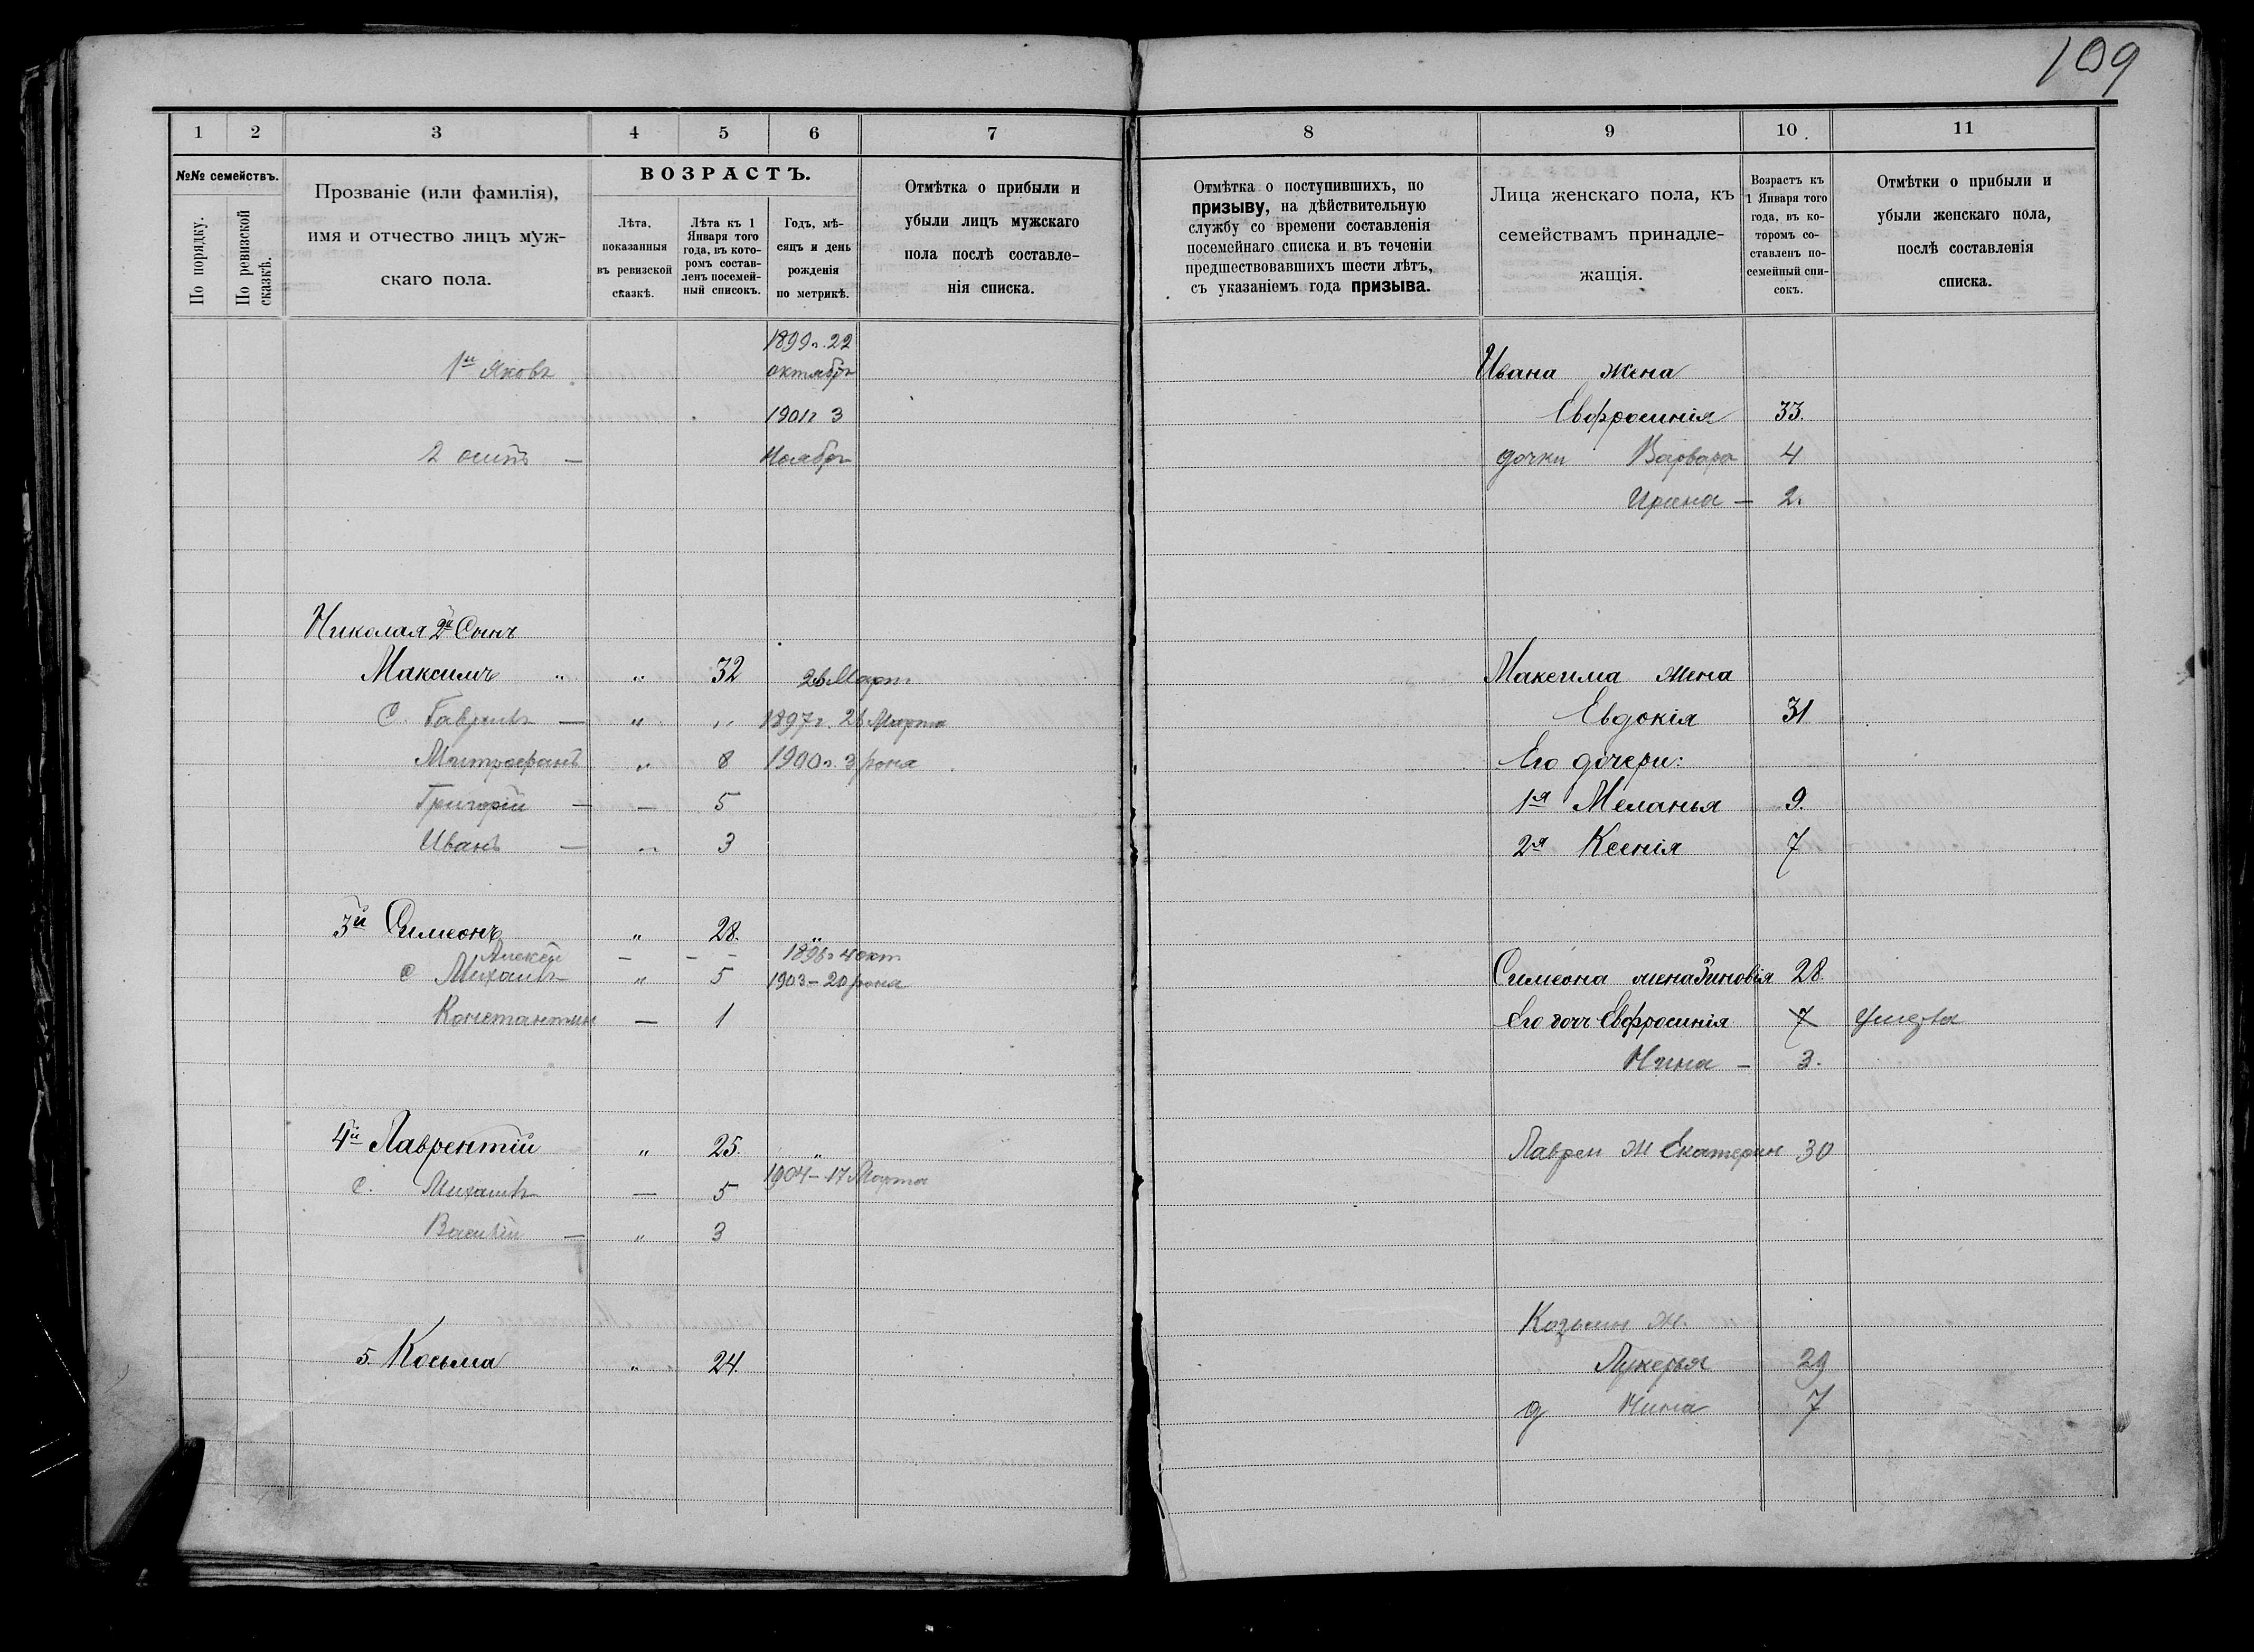 109
1 2 3 4 5 6 7 8 9 10 11
№№ семействъ.
По порядку.
По ревизской сказкѣ.
Прозваніе (или фамилія),
имя и отчество лицъ муж-
скаго пола.
ВОЗРАСТЪ.
Лѣта,
показанныя
въ ревизской
сказкѣ.
Лѣта къ 1
Января того
года, въ кото-
ромъ состав-
ленъ посемей-
ный списокъ.
Годъ, мѣ-
сяцъ и день
рожденія
по метрикѣ.
Отмѣтка о прибыли и
убыли лицъ мужскаго
пола послѣ составле-
нія списка.
Отмѣтка о поступившихъ, по
призыву, на дѣйствительную
службу со времени составленія
посемейнаго списка и въ теченіи
предшествовавшихъ шести лѣтъ,
съ указаніемъ года призыва.
Лица женскаго пола, къ
семействамъ принадле-
жащія.
Возрастъ къ
1 Января того
года, въ ко-
торомъ со-
ставленъ по-
семейный спи-
сокъ.
Отмѣтки о прибыли и
убыли женскаго пола,
послѣ составленія
списка.
1899г. 22
1й Яковъ октября
1901г 3
2 осипъ — Ноября
Николая 2й Сынъ
Максимъ „ „ 32 26 Март
С. Гавриилъ — „ „ 1897г. 26 Марта
Митрофанъ „ 8 1900г. 3 іюня
Григорій — — 5
Иванъ — „ 3
3й Симеонъ „ 28. „
Алексѣй — — — 1896г 4 окт
с Михаилъ „ 5 1903 — 20 іюня
Константин — 1
4й Лаврентій „ 25. „
1904 — 17 Марта
с. Михаилъ — 5
Василій — „ 3
5. Косьма „ 24.
Ивана жена
Евфросинія 33.
дочки Варвара 4
Ирина — 2.
Максима жена
Евдокія 31
Его дочери:
1я Меланья 9.
2я Ксенія 7
Симеона жена Зиновія 28
Его дочь Евфросинія 7 Умерла
Нина — 3.
Лаврен ж Екатерин 30
Козьмы ж.
Лукерья 29
д Нина 7